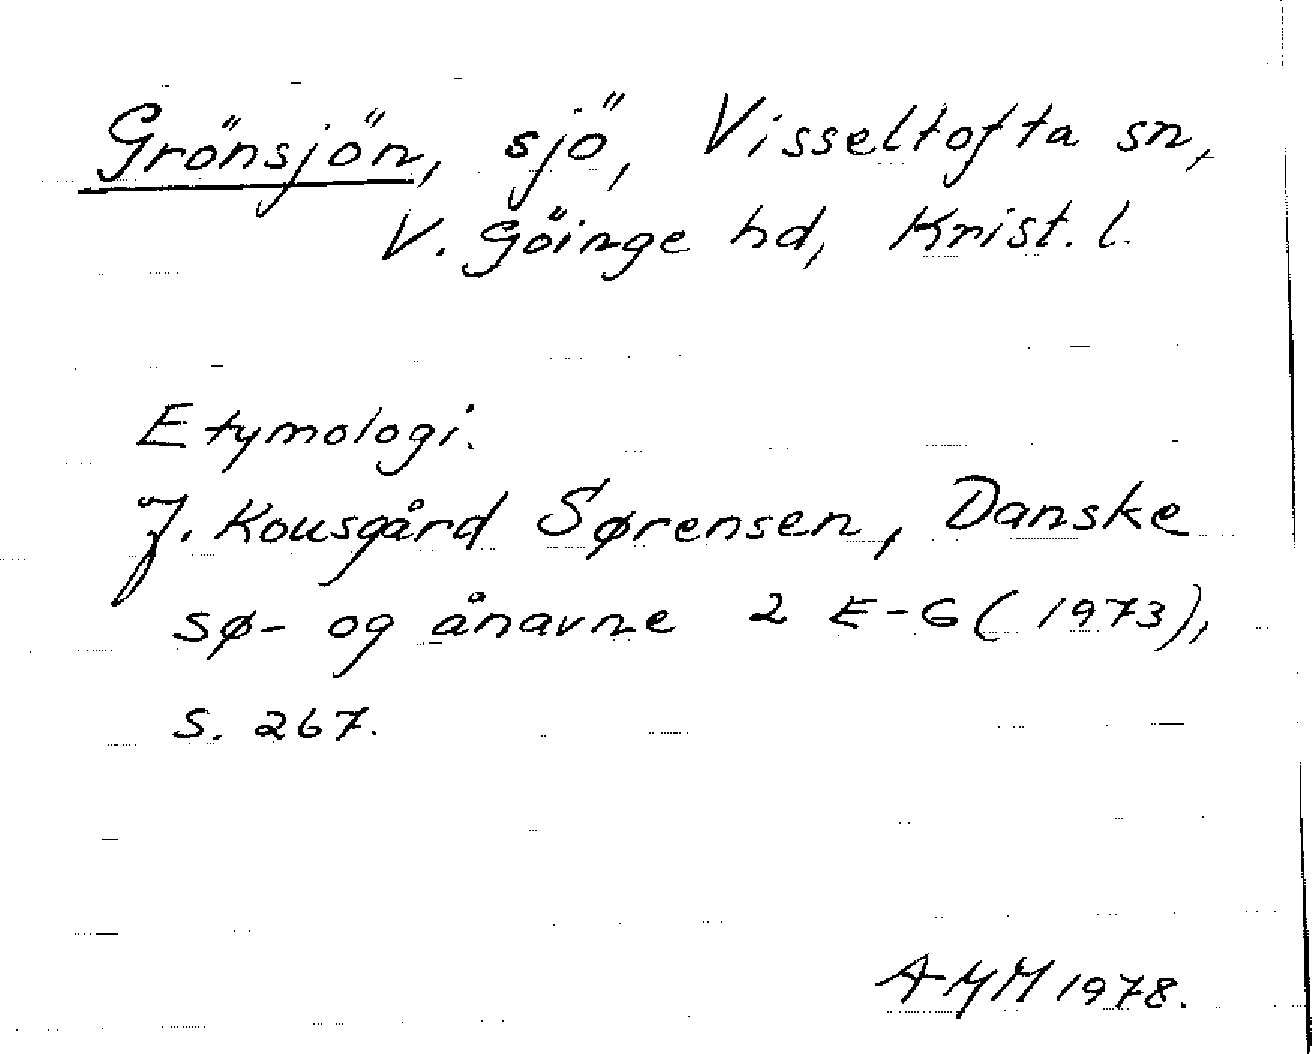 Grönsjön, sjö, Visseltofta sn,
V. Göinge hd, Krist. l.
Etymologi.
J. Kousgård Sørensen, Danske
sø- og ånavne 2 E-G (1973),
s. 267.
AMM 1978.